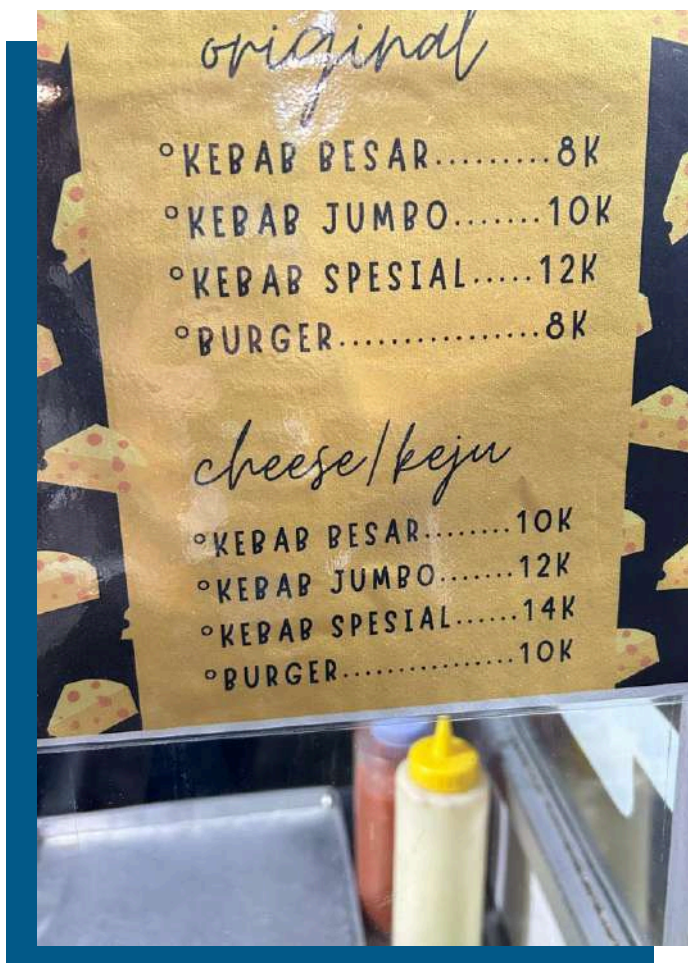 original
°KEBAB BESAR.........8K
°KEBAB JUMBO.......10K
°KEBAB SPESIAL.....12K
°BURGER................8K
cheese/keju
°KEBAB BESAR........10K
°KEBAB JUMBO.......12K
°KEBAB SPESIAL......14K
°BURGER................10K